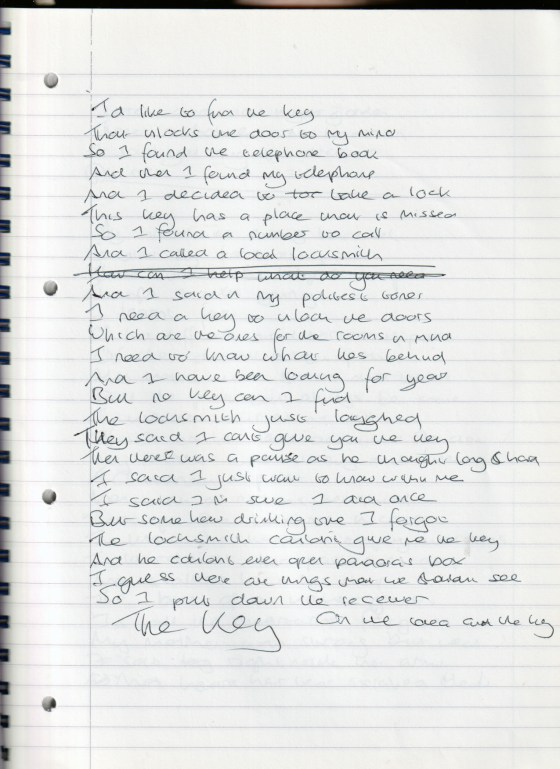 I'd like to find the key
That unlocks the door to my mind
So I found the telephone book
And then I found my telephone
And I decided to tot take a look
This key has a place that is missed
So I found a number to call
And I called a local locksmith
How can I help what do you need
And I said in my politest tones
I need a key to unlock the doors
Which are the ones for the rooms in mind
I need to know what lies behind
And I have been looking for years
But no key can I find
The locksmith just laughed
They said I can't give you the key
Then there was a pause as he thought long & hard
I said I just want to know within me
I said I'm sure I did once
But somehow during time I forgot
The locksmith couldn't give me the key
And he couldn't even open pandora's box
I guess there are things that we shouldn't see
So I put down the receiver
The Key On the idea and the key